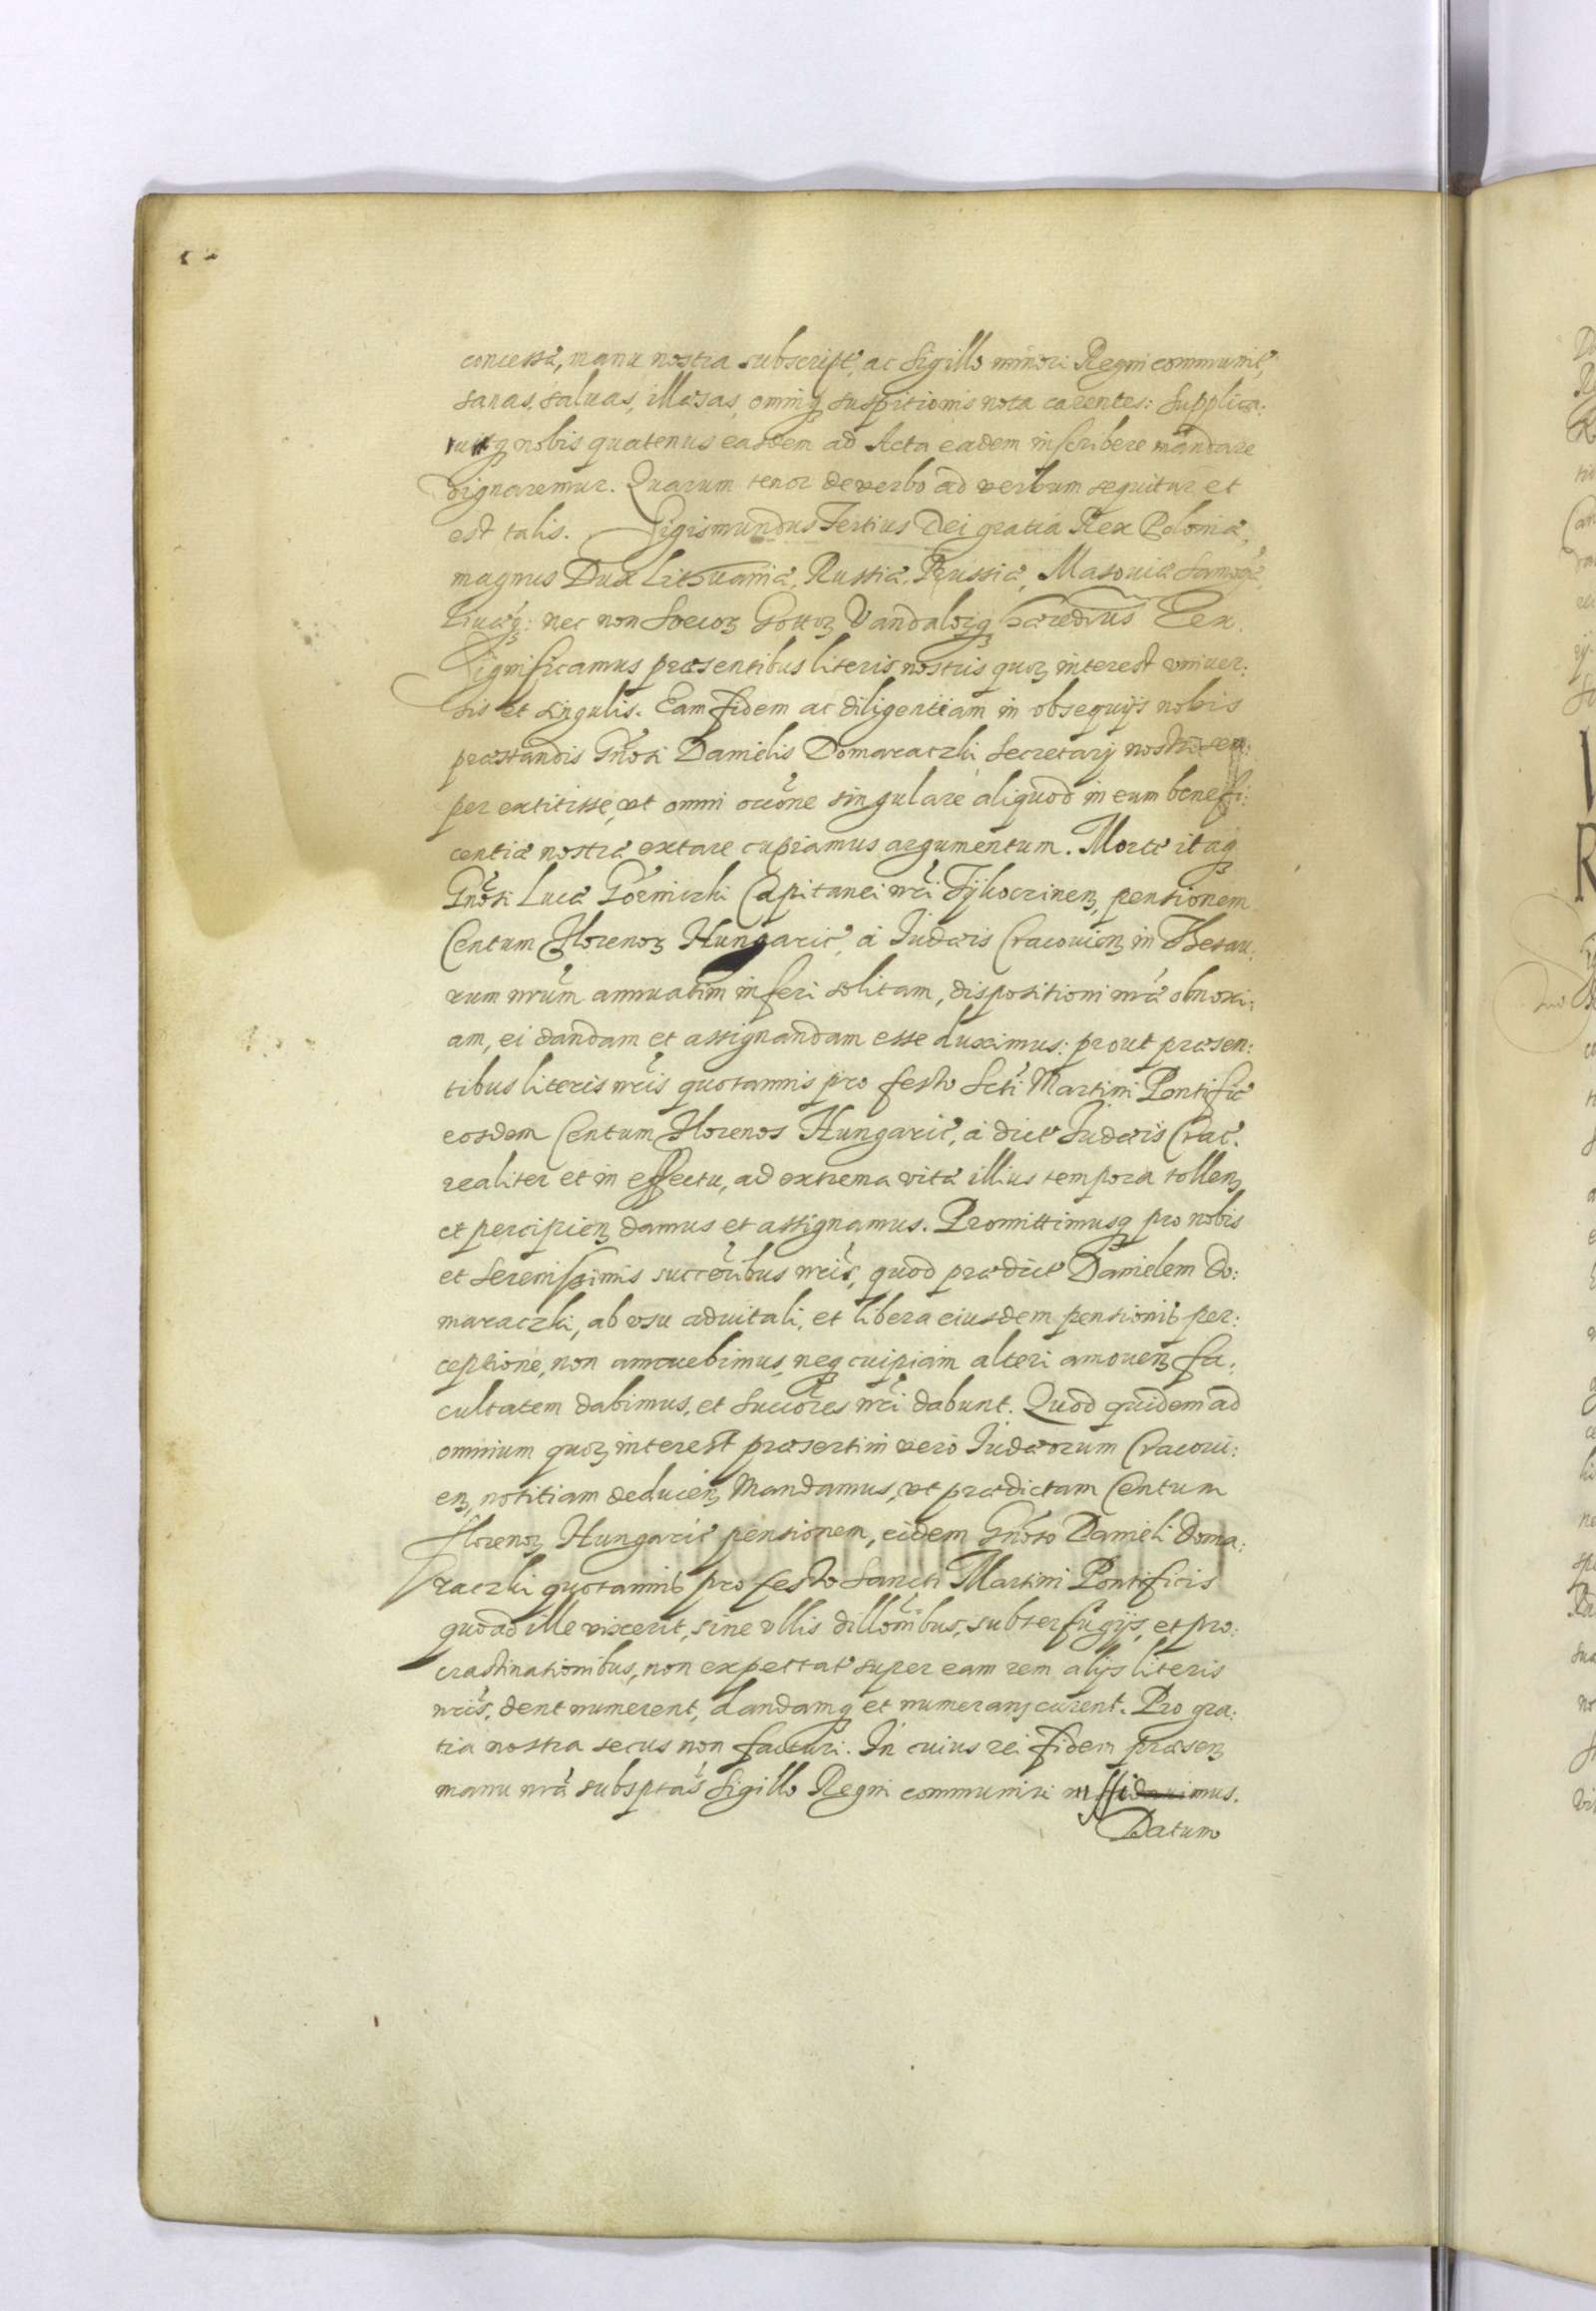 concessa, manu nostra subscript, ac Sigillo minori Regni communit,
sanas, saluas, illæsas, omniq suspitionis nota carentes: Supplica:
uitq nobis quatenus easdem ad Acta eadem inscribere mandare
dignaremur. Quarum tenor de verbo ad verbum sequitur et
est talis. Sigismundus Tertius Dei gratia Rex Poloniæ,
magnus Dux Lithuaniæ, Russiæ, Prussiæ, Masouiæ Samog,
Liuoq: nec non Suecoꝝ Gottoꝝ Vandaloꝝq hæredius Rex.
Significamus præsentibus literis nostris quoꝝ interest vniuer:
sis et singulis. Eam fidem ac diligentiam in obsequijs nobis
præstandis Gnosi Danielis Domaraczki Secretarij nostri sem:
per extitisse, vt omni occone singulare aliquod in eum benefi:
centiæ nostræ extare cupiamus argumentum. Morte itaq
Gnosi Lucæ Gorniczki Capitanei nri Tijkocinen, pensionem
Centum Florenoꝝ Hungaric, à Iudæis Cracouien in Thesau:
rum nrum annuatim inferi solitam, dispositioni nræ obnoxi:
am, ei dandam et assignandam esse duximus: prout præsen:
tibus literis nris quotannis pro festo Scti Martini Pontific
eosdem Centum Florenos Hungaric, à dict Iudæis Crac.
realiter et in effectu, ad extrema vitæ illius tempora tollen
et percipien damus et assignamus. Promittimusq pro nobis
et Serenissimis succeribus nris, quod prædict Danielem Do:
maraczki, ab vsu aduitali, et libera eiusdem pensionis per:
ceptione, non amouebimus, neq cuipiam alteri amouen fa:
cultatem dabimus, et Succores nri dabunt. Quod quidem ad
omnium quoꝝ interest præsertim vero Iudæorum Cracoui:
en, notitiam deducen Mandamus, vt prædictam Centum
florenoꝝ Hungaric pensionem, eidem Gnoso Danieli Doma:
raczki quotannis pro festo Sancti Martini Pontificis
quoad ille vixerit, sine vllis dillonibus, subterfugijs, et pro:
crastinationibus, non expectat super eam rem alijs literis
nris, dent numerent, dandamq et numeran curent. Pro gra:
tia nostra secus non facturi. In cuius rei fidem præsen
manu nra subsptas Sigillo Regni communiri iussimus.
Datum